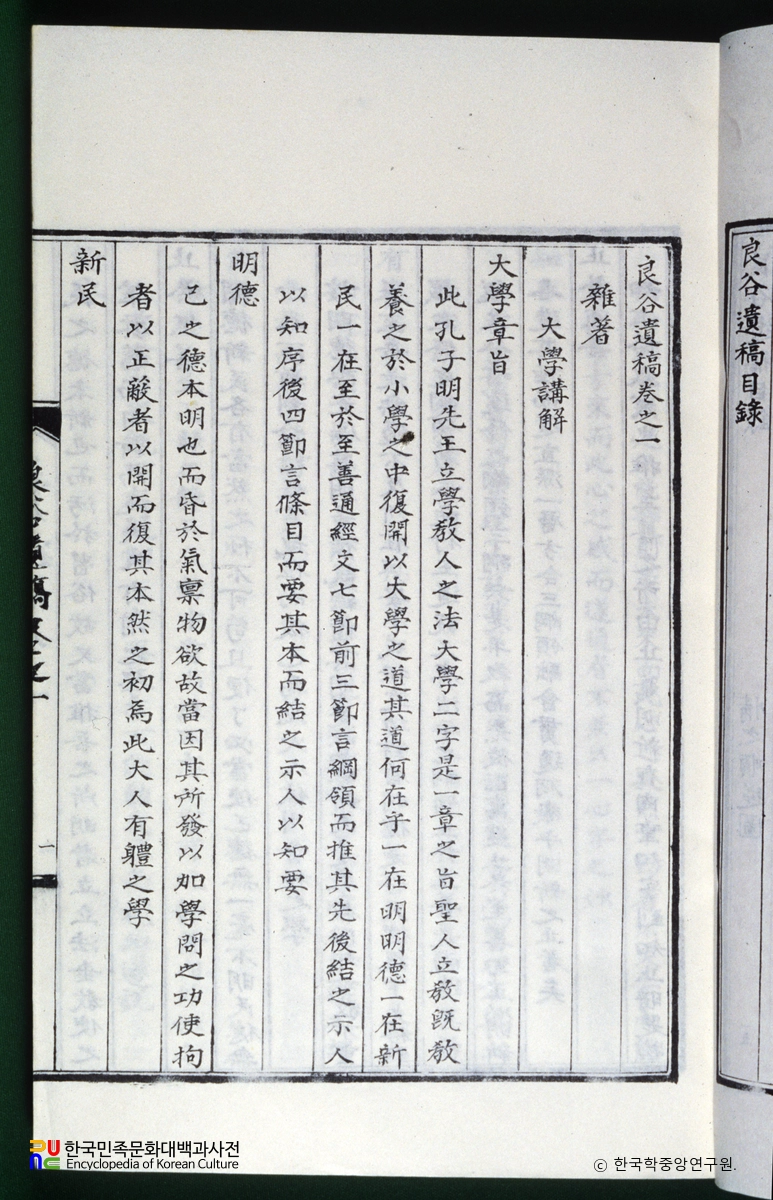 良谷遺稿目錄
良谷遺稿卷之一
雜著
大學講解
大學章旨
此孔子明先王立學敎人之法大學二字是一章之旨聖人立敎旣敎
養之於小學之中復開以大學之道其道何在乎一在明明德一在新
民一在至於至善通經文七節前三節言綱領而推其先後結之示人
以知序後四節言條目而要其本而結之示人以知要
明德
己之德本明也而昏於氣禀物欲故當因其所發以加學問之功使拘
者以正蔽者以開而復其本然之初為此大人有軆之學
新民
良谷遺稿卷之一
一
한국민족문화대백과사전
Encyclopedia of Korean Culture
ⓒ 한국학중앙연구원.